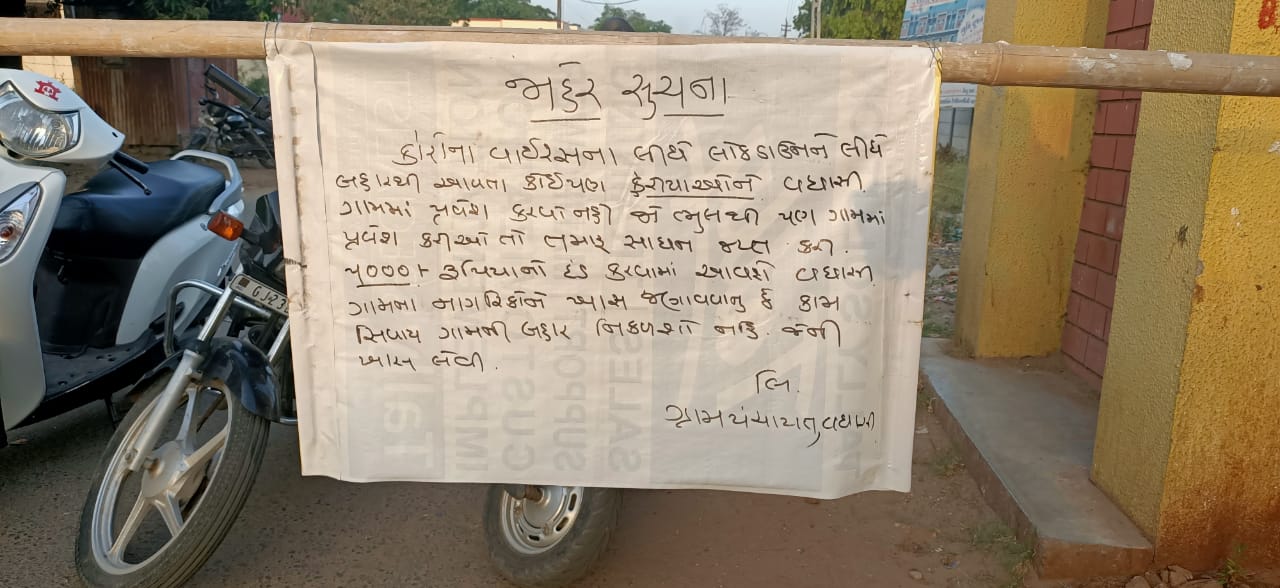 જાહેર સુચના
કોરોના વાઈરસના લીધે લોકડાઉનને લીધે
બહારથી આવતા કોઈપણ ફેરીયાઓને વઘાસી
ગામમાં પ્રવેશ કરવો નહી જો ભુલથી પણ ગામમાં
પ્રવેશ કરીઓ તો તમારૂ સાધન જપ્ત કરી.
૫૦૦૦/- રૂપિયાનો દંડ કરવામાં આવશે વઘાસી
ગામના નાગરિકોને ખાસ જણાવવાનુ કે કામ
સિવાય ગામની બહાર નિકળશો નહિ. જેની
ખાસ લેવી.
લિ.
ગ્રામપંચાયત, વઘાસી
GJ23